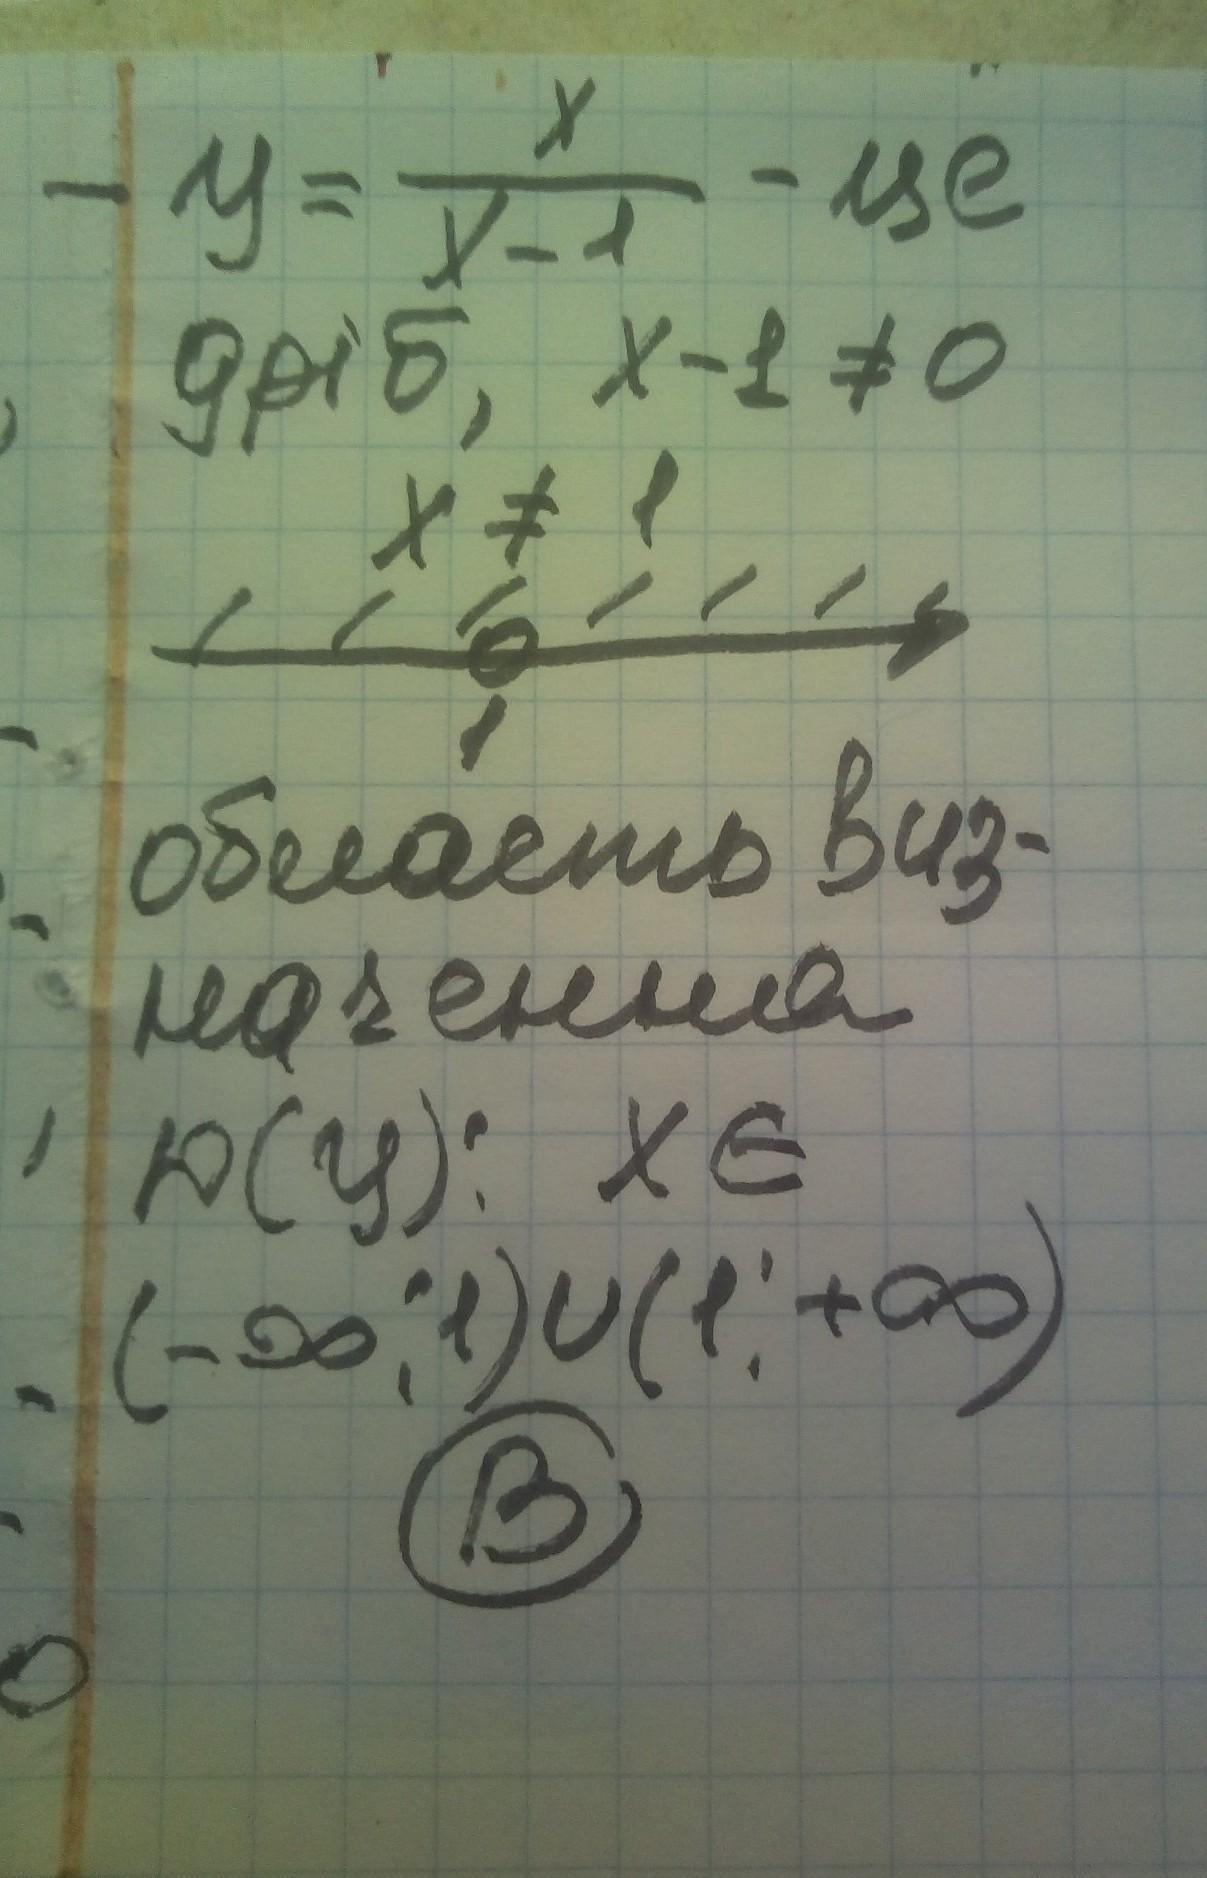 - y = x/(x-1) - це
дріб, x-1 ≠ 0
x ≠ 1
1
область виз-
начення
D(y): x ∈
(-∞; 1)∪(1; +∞)
В